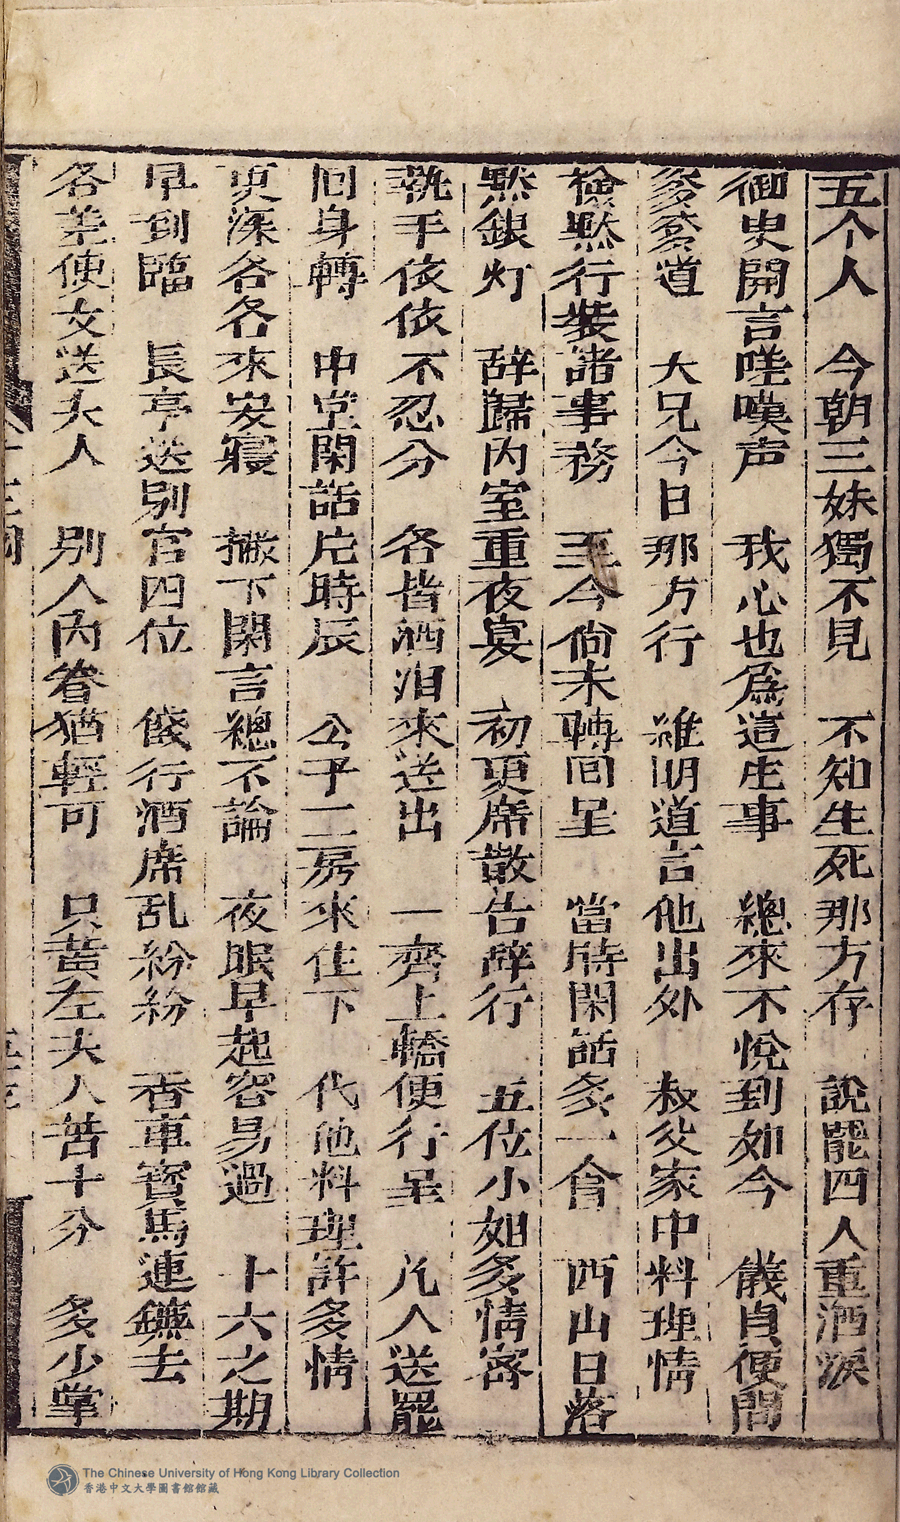 五个人 今朝三妹獨不見 不知生死那方存 說罷四人重洒淚
御史開言嗟嘆声 我心也為這庄事 總來不悅到如今 儀貞便問
爹爹道 大兄今日那方行 維明道言他出外 叔父家中料理情
檢點行裝諸事務 至今尚未轉回呈 當時閑話多一會 西山日落
點銀灯 辞歸內室重夜宴 初更席散告辞行 五位小姐多情客
執手依依不忍分 各皆洒泪來送出 一齊上轎便行呈 凢人送罷
回身轉 中堂閑話片時辰 公子二房來住下 代他料理許多情
更深各各來安寢 撇下閑言總不論 夜眠早起容易過 十六之期
早到臨 長亭送別官四位 餞行酒席乱紛紛 香車寶馬連鑣去
各差使女送夫人 別人內眷猶輕可 只黃左夫人苦十分 多少掌
The Chinese University of Hong Kong Library Collection
香港中文大學圖書館館藏